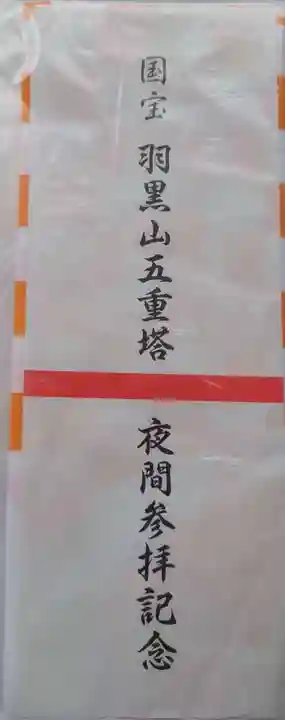 国宝 羽黒山五重塔 夜間参拝記念